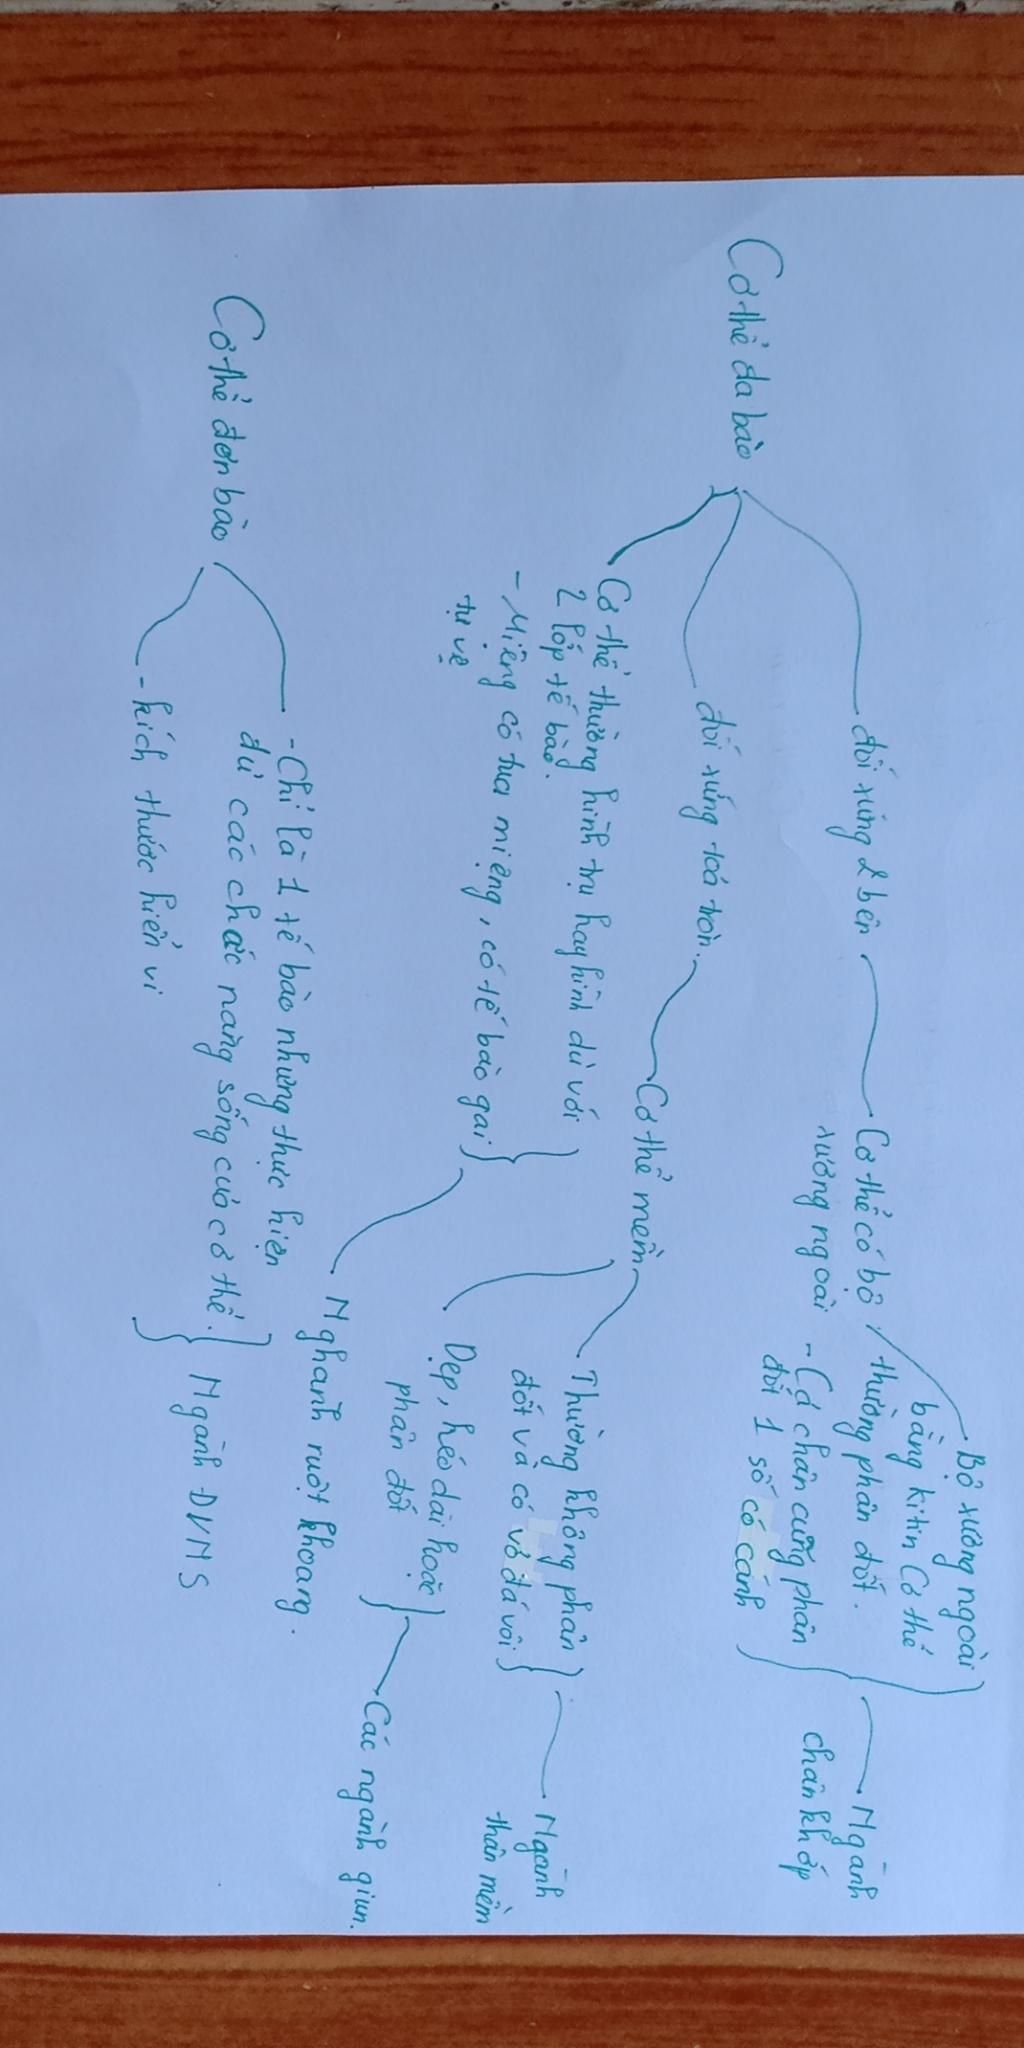 Cơ thể đa bào
đối xứng 2 bên
Cơ thể có bộ
xương ngoài
Bộ xương ngoài
bằng kitin Cơ thể
thường phân đốt.
- Cá chân cũng phân
đốt 1 số có cánh
Ngành
chân khớp
đối xứng toả tròn.
Cơ thể mềm
Thường không phân
đốt và có vỏ đá vôi
Ngành
thân mềm
Cơ thể thường hình trụ hay hình dù với
2 lớp tế bào.
- Miệng có tua miệng, có tế bào gai
tự vệ
Dẹp, kéo dài hoặc
phân đốt
Các ngành giun.
Nghành ruột khoang.
Cơ thể đơn bào
- Chỉ là 1 tế bào nhưng thực hiện
đủ các chức năng sống của cơ thể.
- kích thước hiển vi
Ngành DVNS